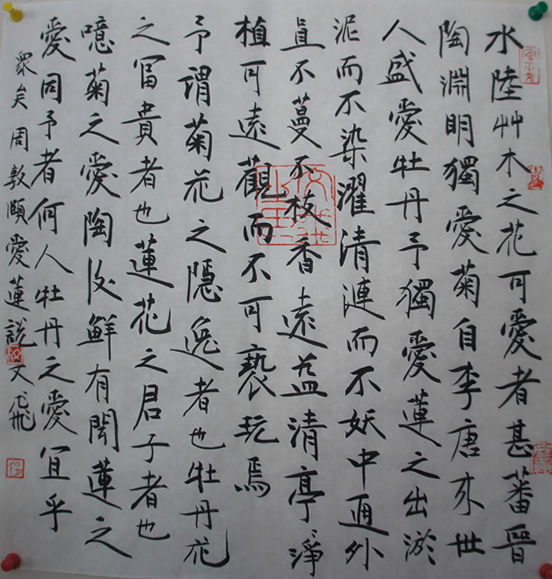 水陸艸木之花可愛者甚蕃晉
陶淵明獨愛菊自李唐來世
人盛愛牡丹予獨愛蓮之出淤
泥而不染濯清漣而不妖中通外
直不蔓不枝香遠益清亭淨
植可遠觀而不可褻玩焉
予謂菊花之隱逸者也牡丹花
之富貴者也蓮花之君子者也
噫菊之愛陶後鮮有聞蓮之
愛同予者何人牡丹之愛宜乎
衆矣周敦頤愛蓮說文飛